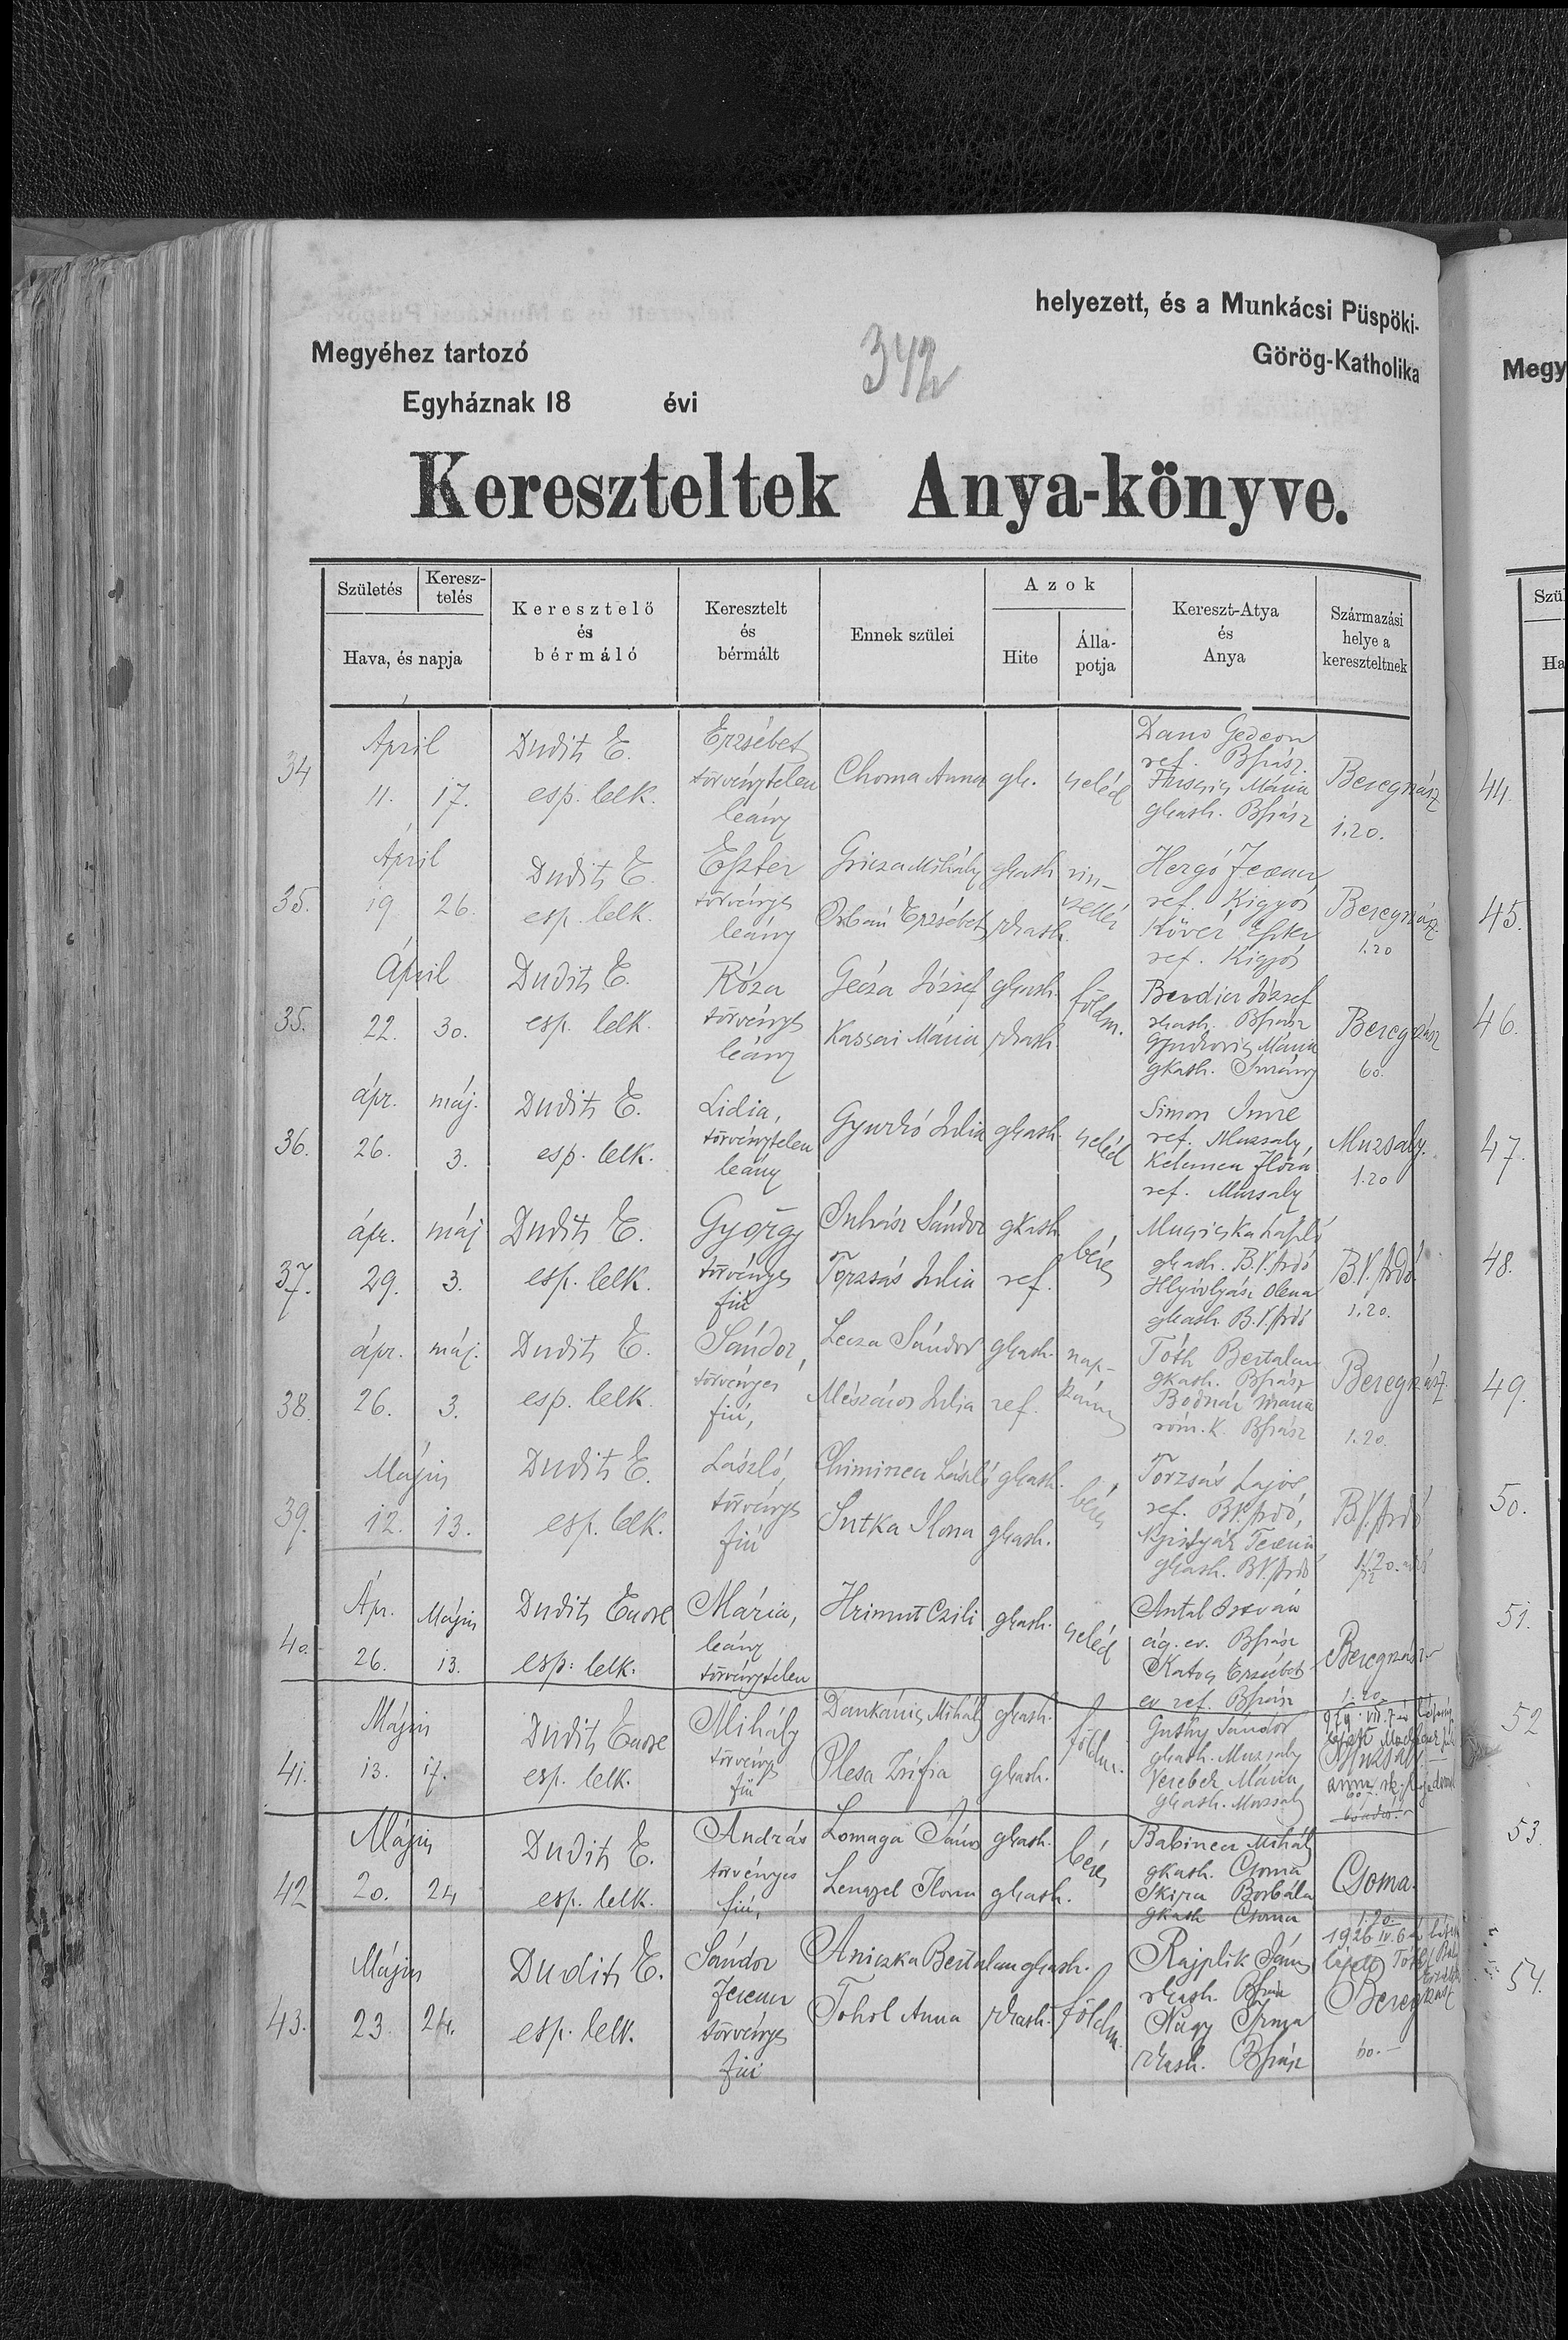 helyezett, és a Munkácsi Püspöki-
Megyéhez tartozó
342
Görög-Katholika
Egyháznak 18 évi
Kereszteltek Anya-könyve.
Születés
Keresz-
telés
Hava, és napja
Keresztelő
és
bérmáló
Keresztelt
és
bérmált
Ennek szülei
Azok
Hite
Álla-
potja
Kereszt-Atya
és
Anya
Származási
helye a
kereszteltnek
34
April
11. 17.
Dudits E.
esp. lelk.
Erzsébet
törvénytelen
leány
Choma Anna
gk.
cseléd
Gedeon
ref. Bszász.
Mária
gkath. Bszász
Beregszász
1.20.
35.
April
19 26.
Dudits E.
esp. lelk.
Eszter
törvényes
leány
Mihály
Orbán Erzsébet
gkath
rkath.
vin-
cellér
Hergó Ferencz
ref. Kigyós
Kövér Eszter
ref. Kigyós
Beregszász
1.20
35.
April
22. 30.
Dudits E.
esp. lelk.
Róza
törvényes
leány
Gecza József
Kassai Mária
gkath.
rkath.
földm.
József
rkath. Bszász
Mária
gkath.
Beregszász
60.
36.
ápr. máj.
26. 3.
Dudits E.
esp. lelk.
Lidia,
törvénytelen
leány
Gyurkó Julia
gkath.
cseléd
Simon Imre
ref. Muzsaly,
Kelemen Flóra
ref. Muzsaly
Muzsaly.
1.20
37.
ápr. máj
29. 3.
Dudits E.
esp. lelk.
György
törvényes
fiú
Juhász Sándor
Torzsás Julia
gkath
ref.
béres
László
gkath. B.V. Ardó
Olena
gkath. B.V. Ardó
B.V. Ardó
1.20.
38.
ápr. máj.
26. 3.
Dudits E.
esp. lelk.
Sándor,
törvényes
fiú,
Lecza Sándor
Mészáros Julia
gkath.
ref.
nap-
számos
Tóth Bertalan
gkath. Bszász
Bodnár Mária
róm. K. Bszász
Beregszász.
1.20.
39.
Május
12. 13.
Dudits E.
esp. lelk.
László,
törvényes
fiú
Chiminecz László
Sutka Ilona
gkath.
gkath.
béres
Torzsás Lajos
ref. BV. Ardó,
gkath. BV. Ardó
B.V. Ardó
1.20.
40.
Ápr. Május
26. 13.
Dudits Emore
esp: lelk.
Mária,
leány
törvénytelen
Hrimut Czili
gkath.
cseléd
Antal István
ág. ev. Bszász
Katos Erzsébet
ev ref. Bszász
Beregszász
1.20.
41.
Május
13. 17.
Dudits Emore
esp. lelk.
Mihály
törvényes
fiú
Dankánics Mihály
Plesa Zsófia
gkath.
gkath.
földm.
Sándor
gkath. Muzsaly
Verebek Mária
gkath. Muzsaly
Muzsaly.
42
Május
20. 24
Dudits E.
esp. lelk.
András
törvényes
fiú,
Lomaga János
Lengyel Ilona
gkath.
gkath.
béres
Babinecz Mihály
gkath. Csoma
Skira Borbála
gkath Csoma
Csoma.
1.20.
43.
Május
23. 24.
Dudits E.
esp. lelk.
Sándor
Ferencz
törvényes
fiú
Aniczka Bertalan
Tohol Anna
gkath.
rkath.
földm.
Rajplik János
rkath. Bszász
Nagy Irma
rkath. Bszász
1926 IV. 6
Beregszász
60.-
Megy
Szül
Ha
44.
45.
46.
47.
48.
49.
50.
51.
52
53.
54.